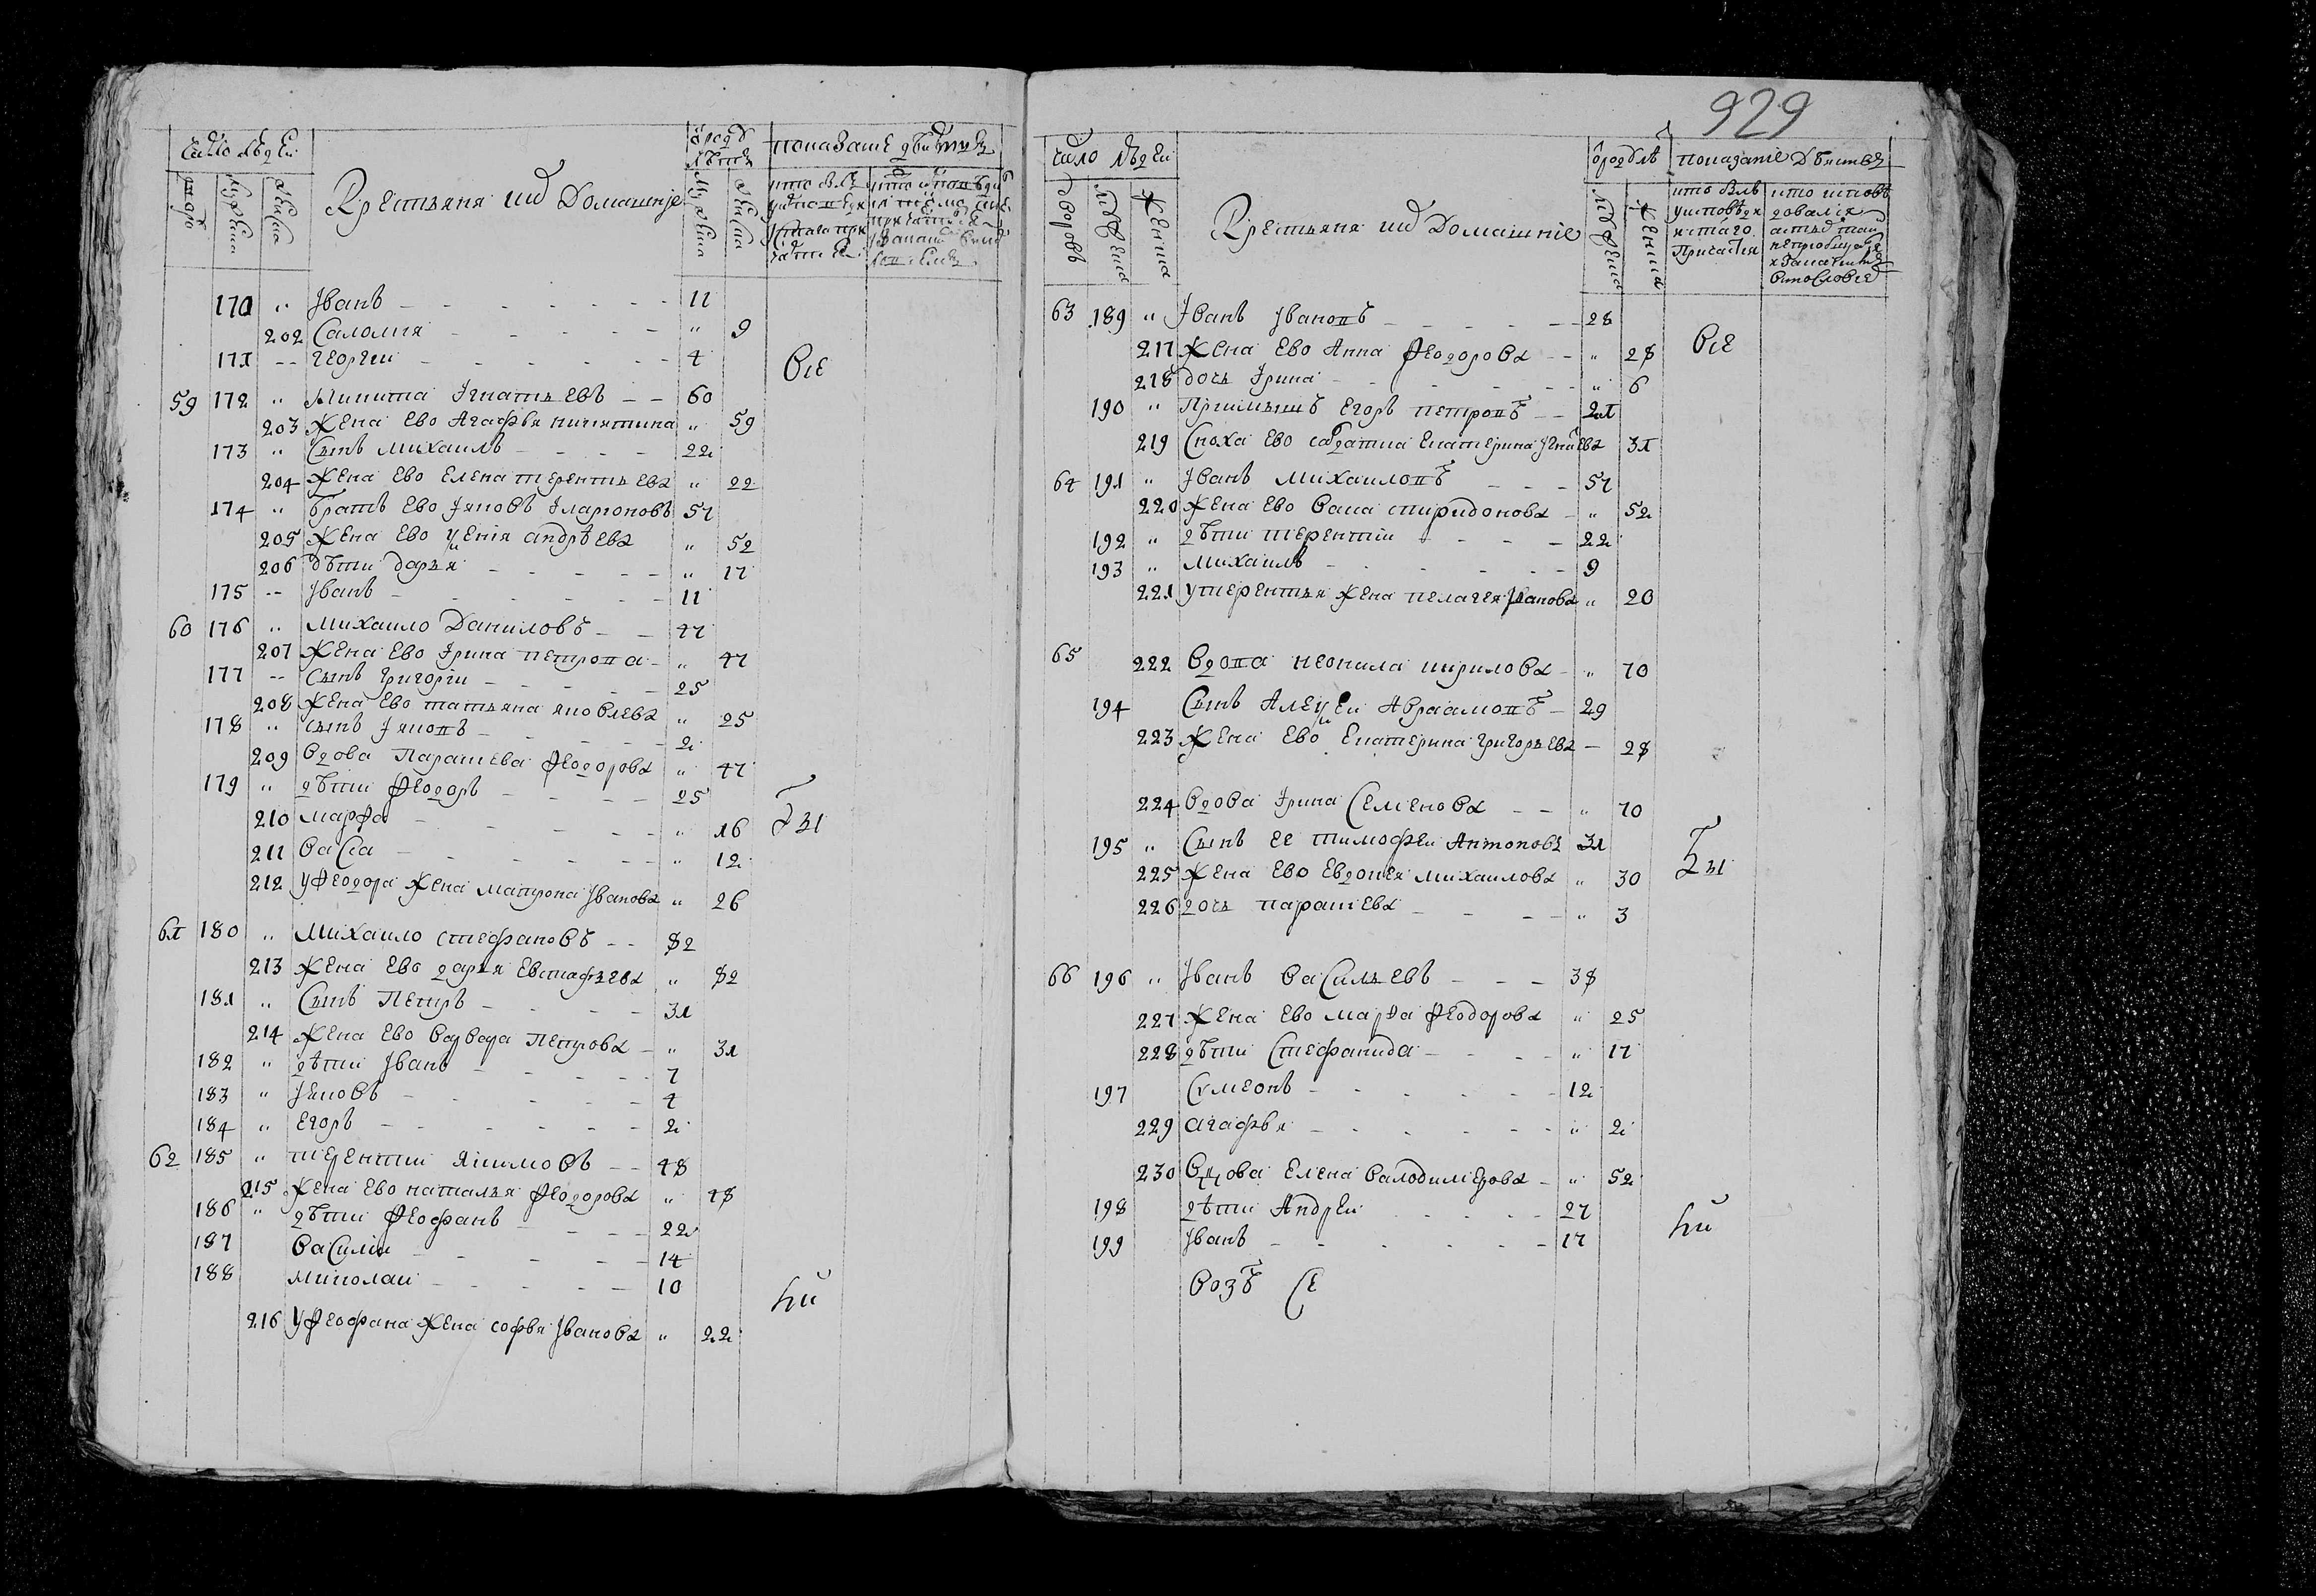 число людей
Крестьяня и их Домашнїе
показание
170 " Іванъ 11
202 Саломия " 9
171 -- Георгеи 4
Все
59 172 " Никита Игнатьевъ 60
203 Жена ево Агафья никитина " 59
173 " Сынъ михаилъ 22
204 Жена ево Елена терентьева " 22
174 " братъ ево Іяковъ Іларионовъ 51
205 Жена ево Ксения андрѣева " 52
206 дѣти дарья " 17
175 -- Іванъ 11
60 176 " михаило Даниловъ 47
207 Жена ево Ірина петрова " 47
177 -- Сынъ григорїи 25
208 Жена ево татьяна яковлева " 25
178 " сынъ Іяковъ 2
209 Вдова Парасиева Феодорова " 47
179 " дѣти Феодоръ 25
210 марфа " 16
бы
211 Васса " 12
212 У Феодора жена матрона Іванова " 26
61 180 " Михаило стефановъ 82
213 Жена ево дарья Евстафьева " 82
181 " Сынъ Петръ 31
214 Жена ево Варвара Петрова " 31
182 " дѣти Іванъ 7
183 " Іяковъ 4
184 " Егоръ 2
62 185 " терентии якимовъ 48
215 Жена ево наталья Феодорова " 48
186 " дѣти Феофанъ 22
187 Василїи 14
188 николаи 10
ли
216 У Феофана жена софья Іванова " 22
929
число людеи
Крестьяня и их Домашнїе
показанїе
дворовъ
женска
63 189 " Іванъ Івановъ 28
217 Жена ево Анна Феодорова " 28
Все
218 дочь Ірина " 6
190 " Приимышъ Егоръ петровъ 21
219 Сноха ево Екатерина 31
64 191 " Іванъ михаиловъ 57
220 Жена ево Васса спиридонова " 52
192 " дѣти терентїи 22
193 " михаилъ 9
221 У терентья жена пелагея Іванова " 20
65 222 Вдова неонила кирилова " 70
194 Сынъ Алеѯеи Авраамовъ 29
223 Жена ево Екатерина григорьева 28
224 Вдова Ірина Семенова " 70
195 " Сынъ ее тимофеи Антоновъ 31
225 Жена ево Евдокея михаилова " 30
бы
226 дочь парасиева " 3
66 196 " Іванъ Васильевъ 38
227 Жена ево марфа Феодорова " 25
228 дѣти Стефанида " 17
197 Сѵмеонъ 12
229 агафья " 2
230 Вдова Елена " 52
198 дѣти Андреи 27
ли
199 Іванъ 17
Возъ Се